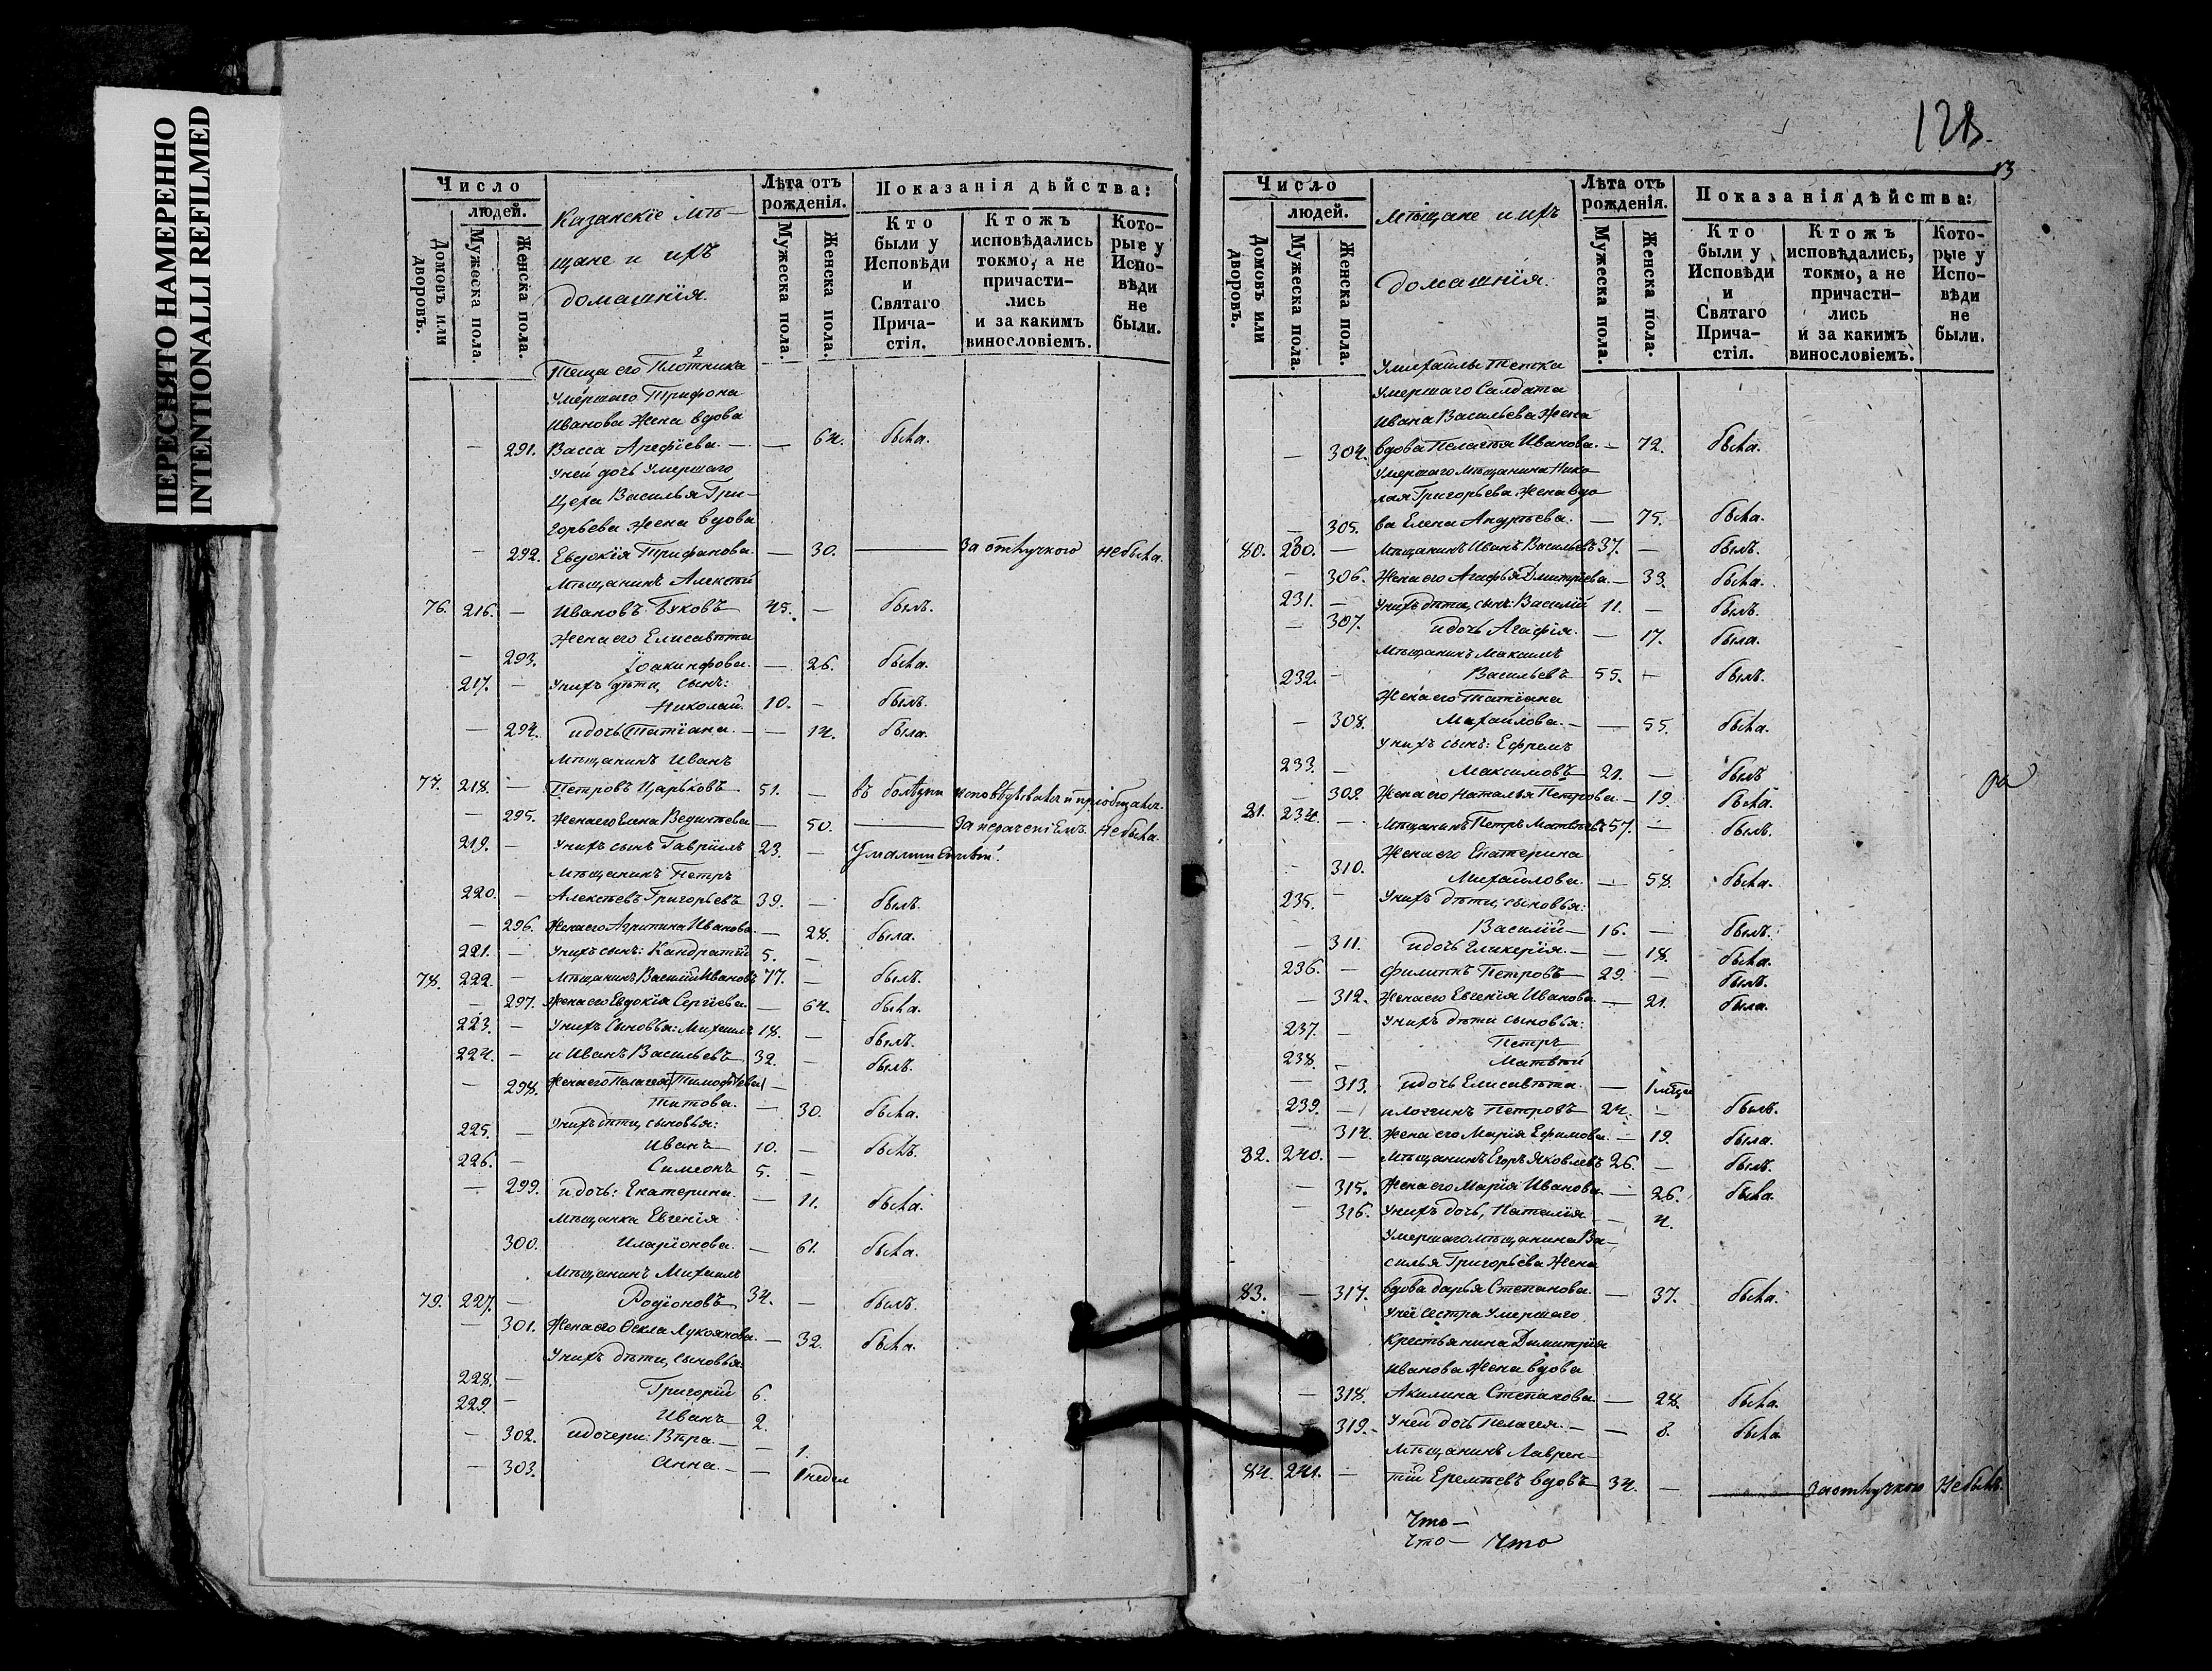 ПЕРЕСНЯТО НАМЕРЕННО
INTENTIONALLI REFILMED
Число
людей.
Домовъ или дворовъ.
Мужеска пола.
Женска пола.
Казанскіе мѣ-
щане и ихъ
домашнія.
Лѣта отъ
рожденія.
Мужеска пола.
Женска пола.
Показанія дѣйства:
Кто
были у
Исповѣди
и
Святаго
Прича-
стія.
Ктожъ
исповѣдались
токмо, а не
причасти-
лись
и за какимъ
винословіемъ.
Кото-
рые у
Испо-
вѣди
не
были.
Теща его Плотника
умершаго Трифона
Иванова жена вдова
— 291. Васса Арефіева. — — 64. была.
У ней дочь умершаго
Цеха Василья Гри-
горьева жена вдова
— 292. Евдокія Трифонова. — 30. — За отлучкою не была.
Мѣщанинъ Алексѣй
76. 216. — Ивановъ Буковъ 45. — былъ.
Жена его Елисавѣта
— 293. Іоакинфова. — 26. была.
217. — У нихъ дѣти, сынъ:
Николай. 10. — былъ.
— 294. и дочь Татіана. — — 14. была.
Мѣщанинъ Иванъ
77. 218. — Петровъ Царьковъ 51. — въ болѣзни исповѣдывался и пріобщался.
— 295. Жена его Елена — 50. — За нераченіемъ не была.
219. — У нихъ сынъ Гавріилъ 23. — Умалишенный.
Мѣщанинъ Петръ
220. — Алексѣевъ Григорьевъ 39. — былъ.
— 296. Жена его Агрипина Иванова. — 28. была.
221. — У нихъ сынъ: Кандратій 5. —
78. 222. — Мѣщанинъ Василій Ивановъ 77. — былъ.
— 297. Жена его Евдокія Сергіева. — 64. была.
223. — У нихъ сыновья: Михаилъ 18. — былъ.
224. — и Иванъ Васильевъ 32. — былъ.
— 298. Жена его Пелагея (Тимофѣева) —
Титова. — 30. была.
225. — У нихъ дѣти, сыновья:
Иванъ 10. — былъ.
226. — Симеонъ 5. —
— 299. и дочь: Екатерина. — 11. была.
Мѣщанка Евгенія
300. Иларіонова. — 61. была.
Мѣщанинъ Михаилъ
79. 227. — Родіоновъ 34. — былъ.
— 301. Жена его Ѳекла Лукоянова. — 32. была.
У нихъ дѣти, сыновья:
228. — Григорій 6.
229. — Иванъ 2.
— 302. и дочери: Вѣра. — — 1.
— 303. Анна. — — недел
123.
13
Число
людей.
Домовъ или дворовъ.
Мужеска пола.
Женска пола.
Мѣщане и ихъ
домашнія.
Лѣта отъ
рожденія.
Мужеска пола.
Женска пола.
Показанія дѣйства:
Кто
были у
Исповѣди
и
Святаго
Прича-
стія.
Ктожъ
исповѣдались,
токмо, а не
причасти-
лись
и за какимъ
винословіемъ.
Кото-
рые у
Испо-
вѣди
не
были.
У Михайлы Тетка
умершаго Салдата
Ивана Васильева жена
— 304. вдова Пелагея Иванова. — 72. была.
Умершаго мѣщанина Нико-
лая Григорьева жена вдо-
— 305. ва Елена Андреева. — 75. была.
80. 230. — Мѣщанинъ Иванъ Васильевъ 37. — былъ.
— 306. Жена его Агафья Дмитріева. — 33. была.
231. — У нихъ дѣти, сынъ: Василій 11. — былъ.
— 307. и дочь Агафія. — 17. была.
Мѣщанинъ Максимъ
232. — Васильевъ 55. — былъ.
Жена его Татіана
— 308. Михайлова. — — 55. была.
У нихъ сынъ: Ефремъ
233. — Максимовъ 21. — былъ
— 309. Жена его Наталья Петрова. — 19. была.
81. 234. — Мѣщанинъ Петръ Матвѣевъ 57. — былъ.
Жена его Екатерина
310. Михайлова. — 58. была.
235. — У нихъ дѣти, сыновья:
Василій — 16. — былъ.
— 311. и дочь Гликерія. — — 18. была.
236. — Филиппъ Петровъ 29. — былъ.
— 312. Жена его Евгенія Иванова. — 21. была.
У нихъ дѣти сыновья:
237. — Петръ
238. — Матвѣй
— 313. и дочь Елисавѣта. — 1 мѣсе
239. — и Логгинъ Петровъ 24. — былъ.
— 314. Жена его Марія Ефимова. — 19. была.
82. 240. — Мѣщанинъ Егоръ Яковлевъ 26. — былъ.
— 315. Жена его Марія Иванова. — 26. была.
— 316. У нихъ дочь, Наталія. — 4.
Умершаго мѣщанина Ва-
силья Григорьева жена
83. — 317. вдова Дарья Степанова. — 37. была.
У ней сестра умершаго
крестьянина Димитрія
Иванова жена вдова
— 318. Акилина Степанова — 28. была.
— 319. У ней дочь Пелагея. — — 8. была
Мѣщанинъ Лаврен-
84. 241. — тій Еремѣевъ вдовъ 34. — — за отлучкою не былъ.
Что —
Что — Что